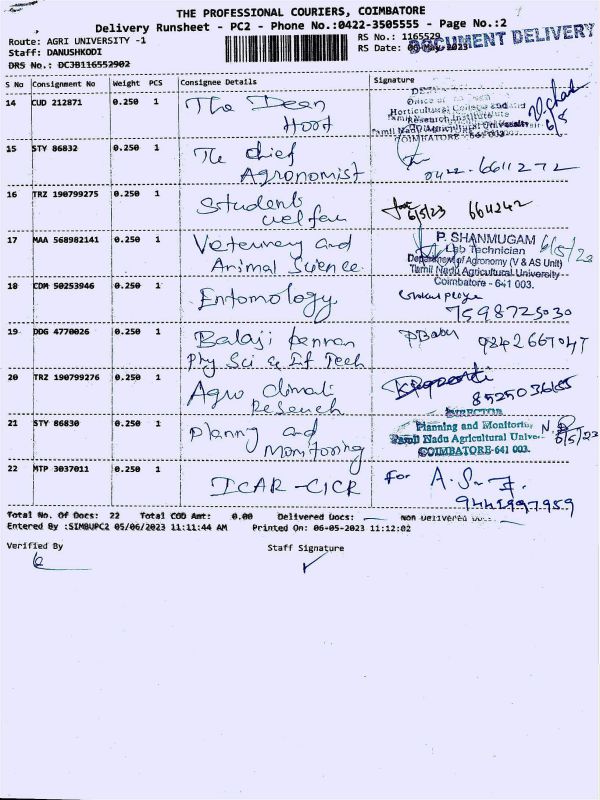 THE PROFESSIONAL COURIERS, COIMBATORE
Delivery Runsheet - PC2 - Phone No.:0422-3505555 - Page No.:2
Route: AGRI UNIVERSITY -1
RS No.: 1165529
Staff: DANUSHKODI
RS Date: 06-May-2023
DOCUMENT DELIVERY
DRS No.: DCJB116552902
S No Consignment No Weight PCS Consignee Details Signature
14 CUD 212871 0.250 1 The Dean
Hort
Horticultural College and
Research Institute
Tamil Nadu Agricultural University
COIMBATORE
6/5
15 STY 86832 0.250 1 The chief
Agronomist
0422-6611272
16 TRZ 190799275 0.250 1 Students
welfare
6/5/23 6611242
17 MAA 568982141 0.250 1 Veterinary and
Animal Science
P. SHANMUGAM
Lab Technician
Department of Agronomy (V & AS Unit)
Tamil Nadu Agricultural University
Coimbatore - 641 003.
6/5/23
18 CDM 50253946 0.250 1 Entomology
7598725030
19 DDG 4770026 0.250 1 Balaji Kannan
Phy Sci & Inf Tech
PBabu
9842667047
20 TRZ 190799276 0.250 1 Agro climate
Research
21 STY 86830 0.250 1 Planning and
Monitoring
DIRECTOR
Planning and Monitoring
Tamil Nadu Agricultural University
COIMBATORE-641 003.
6/5/23
22 MTP 3037011 0.250 1 ICAR-CICR
For
Total No. Of Docs: 22 Total COD Amt: 0.00 Delivered Docs: Non Delivered Docs:
Entered By :SIMBUPC2 05/06/2023 11:11:44 AM Printed On: 06-05-2023 11:12:02
Verified By
Staff Signature